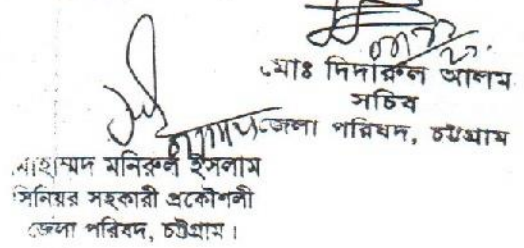 মোঃ দিদারুল আলম
সচিব
জেলা পরিষদ, চট্টগ্রাম
মোহাম্মদ মনিরুল ইসলাম
সিনিয়র সহকারী প্রকৌশলী
জেলা পরিষদ, চট্টগ্রাম।